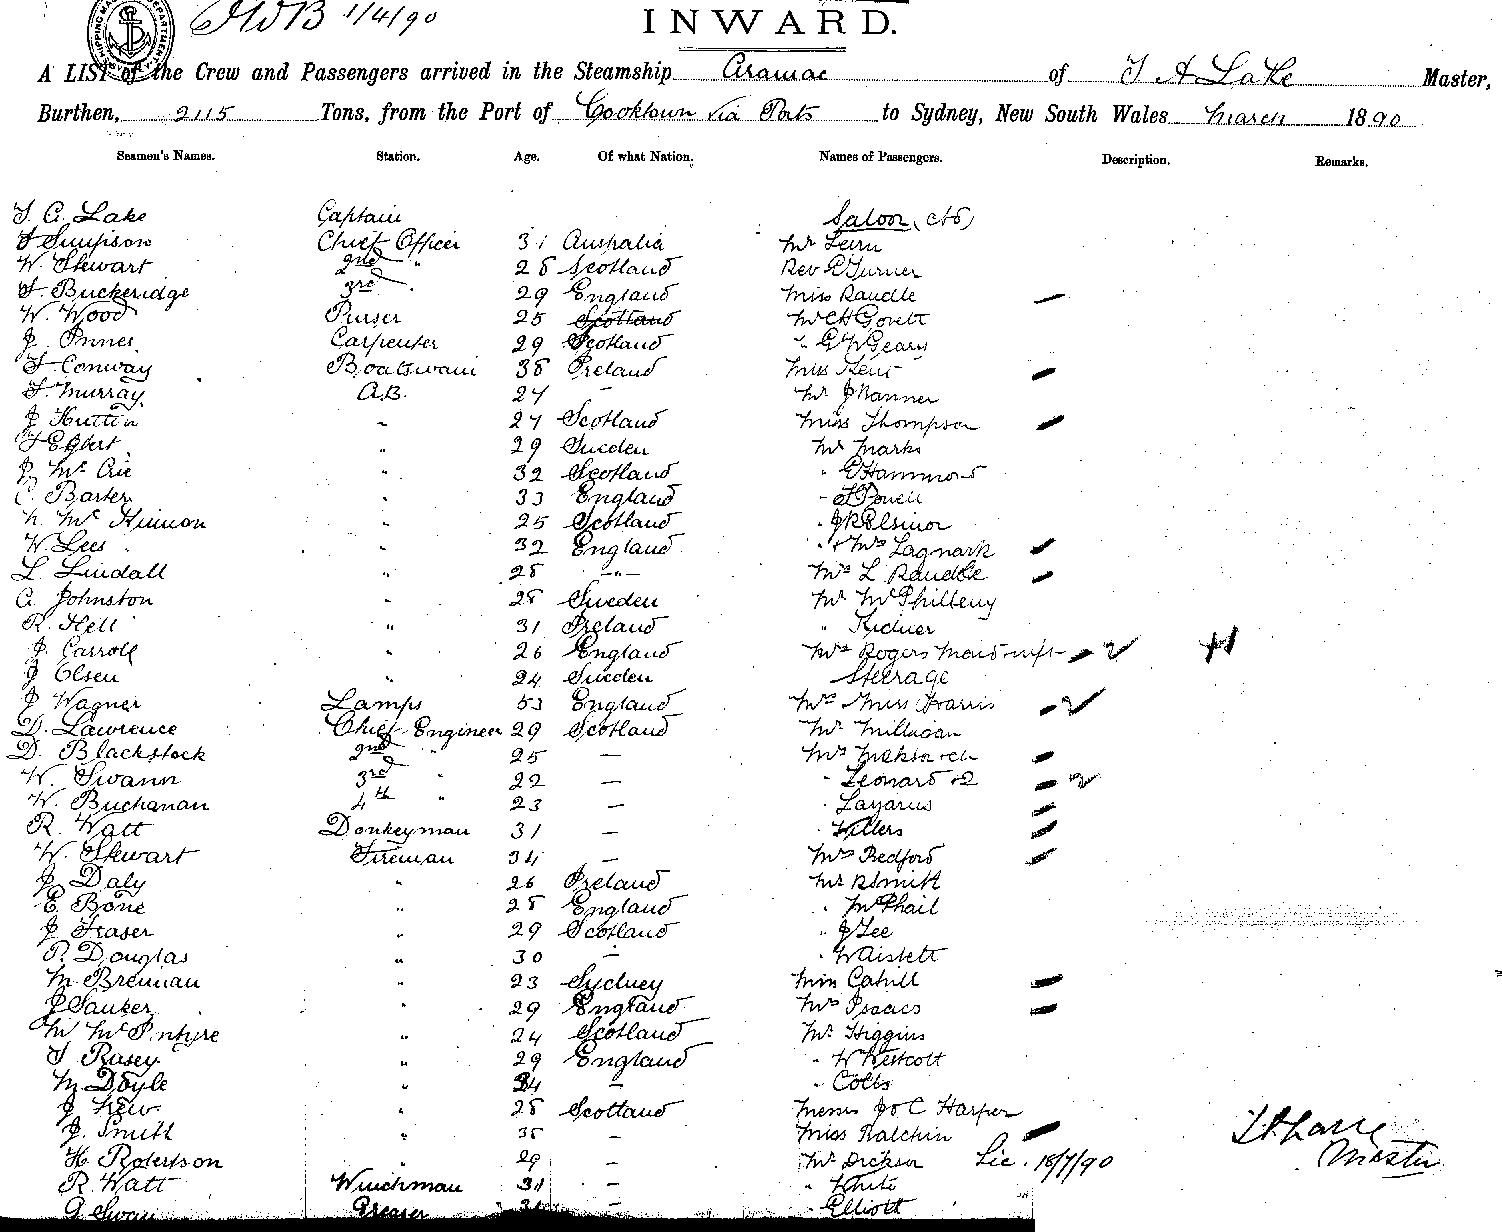 1/4/90
INWARD.
A LIST of the Crew and Passengers arrived in the Steamship Aramac of T A Lake Master,
Burthen, 2115 Tons, from the Port of Cooktown via Ports to Sydney, New South Wales March 1890
Seamen's Names. Station. Age. Of what Nation. Names of Passengers. Description. Remarks.
T. A. Lake Captain Saloon
Simpson Chief Officer 31 Australia Mr
W. Stewart 2nd " 28 Scotland Rev Turner
Buckeridge 3rd " 29 England Miss Raudle
W. Wood Purser 25 Scotland Mr Govett
J Innes Carpenter 29 Scotland " Geary
T Conway Boatswain 38 Ireland Miss Kent
Murray A.B. 24 — Mr J Nanner
J Huttin " 27 Scotland Miss Thompson
Egbert " 29 Sweden Mr Marks
J Mc " 32 Scotland " Hammond
C. Barter " 33 England " Powell
Mc Kinnon " 25 Scotland " Elsinor
W. Lees " 32 England " & Mrs Lagnark
L Lindall " 28 —"— Mrs L Raudle
A Johnston " 28 Sweden Mr
R. Hell " 31 Ireland "
J. Carroll " 26 England Mrs Rogers 2
J Olsen " 24 Sweden Steerage
J Wagner Lamps 53 England Mrs Miss Harris 2
D. Lawrence Chief Engineer 29 Scotland Mr Milligan
D. Blackstock 2nd " 25 — Mrs
W. Swann 3rd " 22 — " Leonard & 2 2
W. Buchanan 4th " 23 — " Lazarus
R. Watt Donkeyman 31 —
W. Stewart Fireman 34 — Mrs Redford
J Daly " 26 Ireland Mr Smith
E. Bone " 28 England " McPhail
J Fraser " 29 Scotland " J Lee
Douglas " 30 —
M Brennan " 23 Sydney Miss Cahill
" 29 England Mrs Isaacs
Mc Intyre " 24 Scotland Mr Higgins
Rasey " 29 England " W Westcott
M Doyle " — " Cotts
J " 28 Scotland Messrs J & C Harper
J. Smith " — Miss Ralchin
H. Robertson " 29 — Mr Dickson Lic. 18/7/90
R. Watt Winchman 31 — " White
Greaser — Elliott
Master